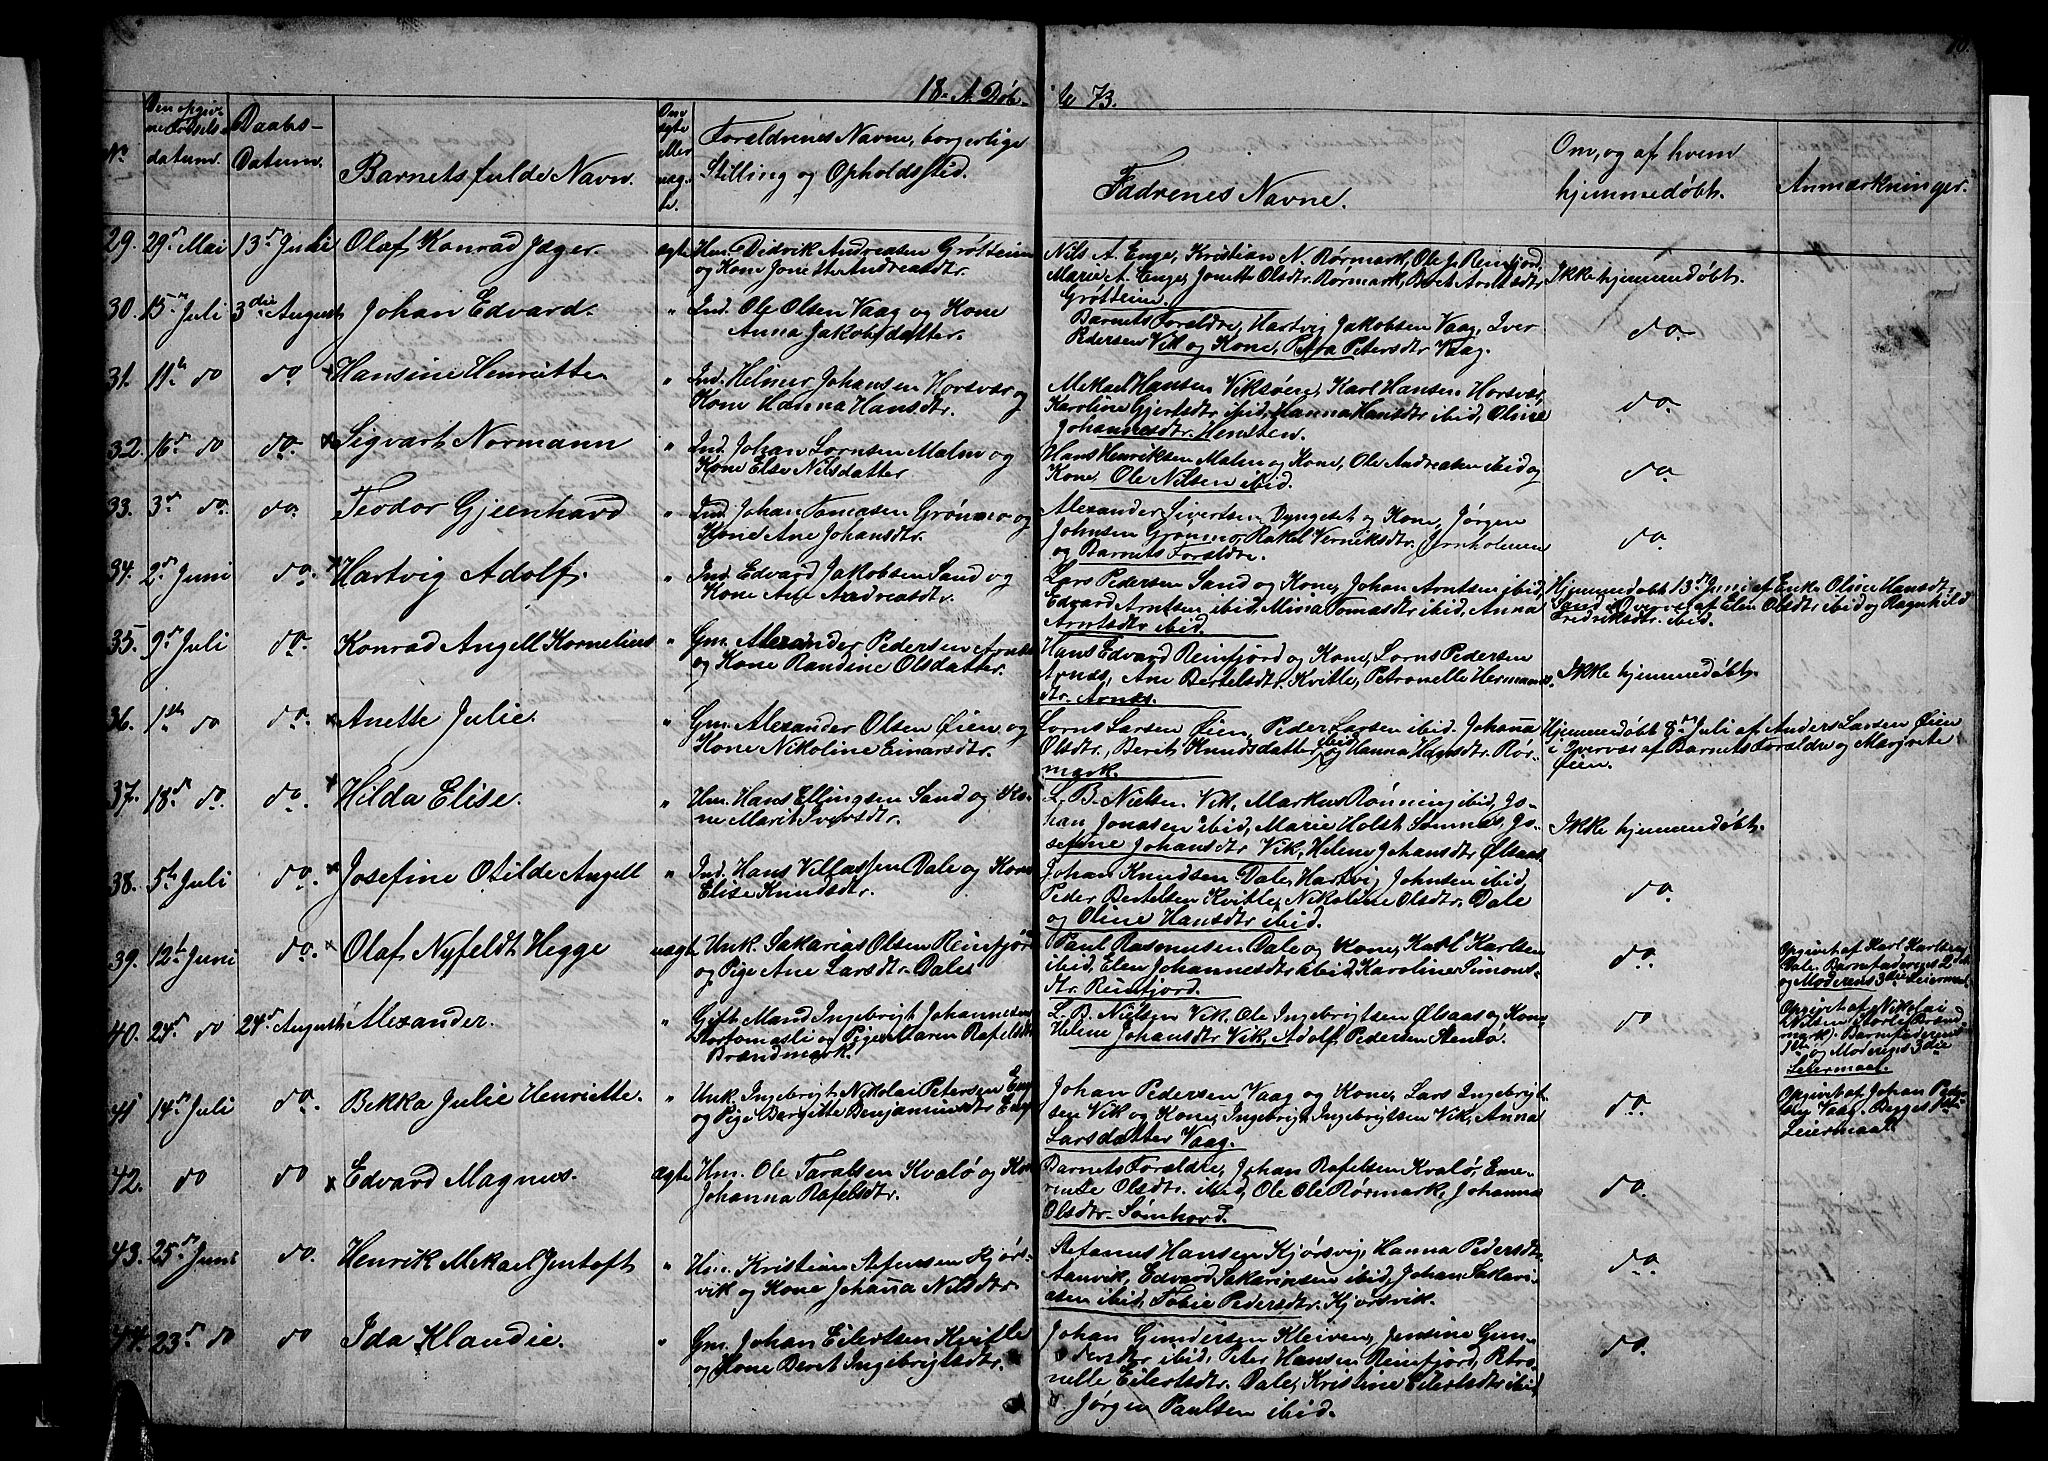 10.
18. A. Døb- te 73.
No
Den opgiv-
ne Fødsels-
datum.
Daabs-
Datum.
Barnets fulde Navn.
Om
ægte
eller
uæg-
te.
Forældrenes Navne, borgerlige
Stilling og Opholdssted.
Fadrenes Navne.
Om, og af hvem
hjemmedøbt.
Anmærkninger.
29. 29de Mai 13de Juli Olaf Konrad Jæger. ægte Hm. Didrik Andreasen Grøtteim
og Kone Jonette Andreasdtr.
Nils A. Enge, Kristian N. Rørmark, Ole J. Reinfjord,
Marie A. Enge, Jonette Olsdtr. Rørmark, Beret Arntsdtr
Grøtteim.
Ikke hjemmedøbt.
30. 15de Juli 3die August Johan Edvard. " Ind. Ole Olsen Vaag og Kone
Anna Jakobsdatter.
Barnets Forældre, Hartvig Jakobsen Vaag, Iver
Pedersen Vik og Kone, Petra Petersdtr Vaag.
do.
31. 11te do do. Hansine Henriette " Ind. Helmer Johansen Horsvær og
Kone Hanna Hansdtr.
Mekael Hansen Viksøen, Karl Hansen Horsvær,
Karoline Gjertsdtr ibid, Hanna Hansdtr ibid, Oline
Johannesdtr. Hensten.
do.
32. 16de do do. x Sigvart Normann " Ind. Johan Lornsen Malm og
Kone Else Nilsdatter
Hans Henriksen Malm og Kone, Ole Andreasen ibid og
Kone, Ole Nilsen ibid.
do.
33. 3de do. do. Teodor Gjeenhard " Ind. Johan Tomasen Grønmo og
Kone Ane Johansdtr.
Alexander Sivertsen Dyngeset og Kone, Jørgen
Johnsen Grønmo, Rakel Verniksdtr. Jernholmen
og Barnets Forældre.
do.
34. 2de Juni do. x Hartvig Adolf. " Ind. Edvard Jakobsen Sand og
Kone Ane Andreasdtr.
Lars Pedersen Sand og Kone, Johan Arntsen ibid,
Edvard Arntsen ibid, Minia Tomasdtr ibid, Anna
Arntsdtr ibid.
Hjemmedøbt 13de Juni af Enke Olsine Hansdtr
Sand i Overvær af Elen Olsdtr ibid og Ragnhild
Fredriksdtr. ibid.
35. 9de Juli do. Konrad Angell Kornelius " Gm. Alexander Pedersen Arnæs
og Kone Randine Olsdatter.
Hans Edvard Reinfjord og Kone, Lorns Pedersen
Arnæs, Ane Bertelsdtr. Kvitle, Petronelle Hermans-
dtr. Arnæs.
Ikke hjemmedøbt.
36. 1ste do do. x Anette Julie. " Gm. Alexander Olsen Øien og
Kone Nikoline Einarsdtr.
Lorns Larsen Øien, Peder Larsen ibid. Johanna
Olsdtr., Berit Knudsdatter ibid og Hanna Hansdtr. Rør-
mark.
Hjemmedøbt 8de Juli af Anders Larsen Øien
i Overvær af Barnets Forældre og Margrete
Øien.
37. 18de do. do. x Hilda Elise. " Hm. Hans Ellingsen Sand og Ko-
ne Marit Iversdtr.
L. B. Nielsen Vik, Markus Rønning ibid, Jo-
han Jonasen ibid, Marie Holst Sømnes, Jo-
sefine Johansdtr Vik, Helene Johansdtr Ølsaas.
Ikke hjemmedøbt.
38. 5te Juli do. x Josefine Otilde Angell " Ind. Hans Vilfassen Dale og Kone
Elise Knudsdtr.
Johan Knudsen Dale, Hartvig Johnsen ibid,
Peder Bertelsen Kvitle, Nikoline Olsdtr. Dale
og Oline Hansdtr ibid.
do.
39. 12te Juni do. x Olaf Nyfeldt Hegge uægte Unk. Sakarias Olsen Reinfjord
og Pige Ane Larsdtr. Dale
Paul Rasmusen Dale og Kone, Karl Karlsen
ibid, Elen Johannesdtr ibid, Karoline Simons-
dtr. Reinfjord.
do.
Opgivet af Karl Karlsen
Dale. Barnefaderens 2det
og Moderens 3die Leiermaal.
40. 24de do 24de August Alexander. " Gift Mand Ingebrigt Johannesen
Stortomasli og Pige Maren Rafelsdtr
Brændmark.
L. B. Nielsen Vik, Ole Ingebrigtsen Ølsaas og Kone
Helene Johansdtr Vik, Adolf Pedersen Stenlø.
do
Opgivet af Nikolai
Nilsen Storli (Brænd-
mark). Barnefaderens
1ste og Moderens 3die
Leiermaal.
41 14de Juli do. Bekka Julie Henriette. " Unk. Ingebrigt Nikolai Petersen Enge
og Pige Bergitte Benjaminsdtr Enge
Johan Pedersen Vaag og Kone, Lars Ingebrigt-
sen Vik og Kone, Ingebrigt Ingebrigtsen Vik, Anna
Larsdatter Vaag.
do.
Opgivet af Johan Peder-
sen Vaag. Begges 1ste
Leiermaal.
42. do do x Edvard Magnus. ægte Hm. Ole Taralsen Kvalø og Kone
Johanna Rafelsdtr.
Barnets Forældre, Johan Rafelsen Kvalø, Eme-
rense Olsdtr. ibid, Ole Ole Rørmark, Johanna
Olsdtr. Sømhovd.
do.
43. 25de Juni do. Henrik Mekael Jentoft " Hm. Kristian Stefansen Kjørs-
vik og Kone Johanna Nilsdtr.
Stefanus Hansen Kjørsvig, Hanna Pedersdtr
Aanvik, Edvard Sakariasen ibid, Johan Sakari-
asen ibid, Tobie Pedersdtr. Kjørsvik.
do.
44. 23de do do Ida Klandie. " Gm. Johan Eilertsen Kvitle
og Kone Beret Ingebrigtsdtr.
Johan Gundersen Kleiven, Jensine Gun-
dersdtr ibid, Peter Hansen Reinfjord, Petro-
nelle Eilertsdtr. Dale, Kristine Eilertsdtr ibid
Jørgen Paulsen ibid.
do.